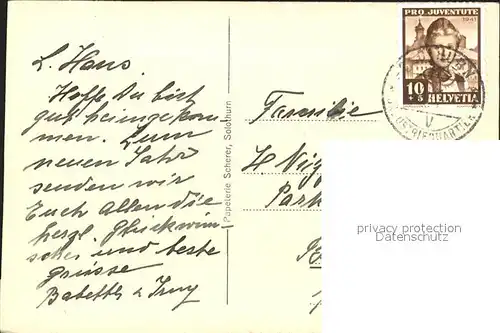 L. Hans.
Hoffe Du bist
gut heimgekom-
men. Zum
neuen Jahr
senden wir
Euch allen die
herzl. Glückwün-
sche und beste
Grüsse
Babeth &
Papeterie Scherer, Solothurn
PRO JUVENTUTE
1941
10
HELVETIA
Familie
H
privacy protection
Datenschutz